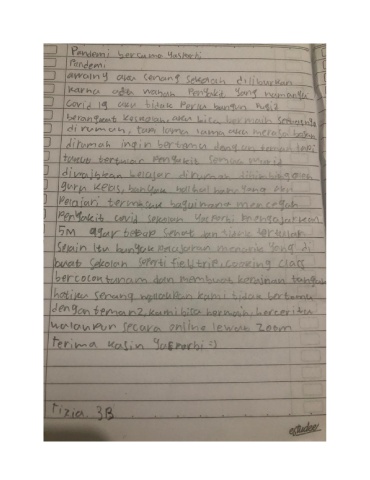 Pandemi bersama Yasporbi
Pandemi
awalnya aku senang sekolah diliburkan
karna ada wabah penyakit yang namanya
Covid 19 aku tidak perlu bangun pagi
berangkat kesekolah, aku bisa bermain sepuasnya
dirumah, tapi lama lama aku merasa bosan
dirumah ingin bertamu dengan teman tapi
takut tertular penyakit semua murid
diwajibkan belajar dirumah dibimbing oleh
guru kelas, banyak hal hal baru yang aku
pelajari termasuk bagaimana mencegah
penyakit covid sekolah Yasporbi mengajarkan
5M agar tetap sehat dan tidak tertular
selain itu banyak pelajaran menarik yang di
buat sekolah seperti fieltrip, cooking class
bercocok tanam dan membuat kerajinan tangan
hatiku senang walaupun kami tidak bertamu
dengan teman2, kami bisa bermain, bercerita
walaupun secara online lewat zoom
Terima kasih Yasporbi :)
Tizia. 3B